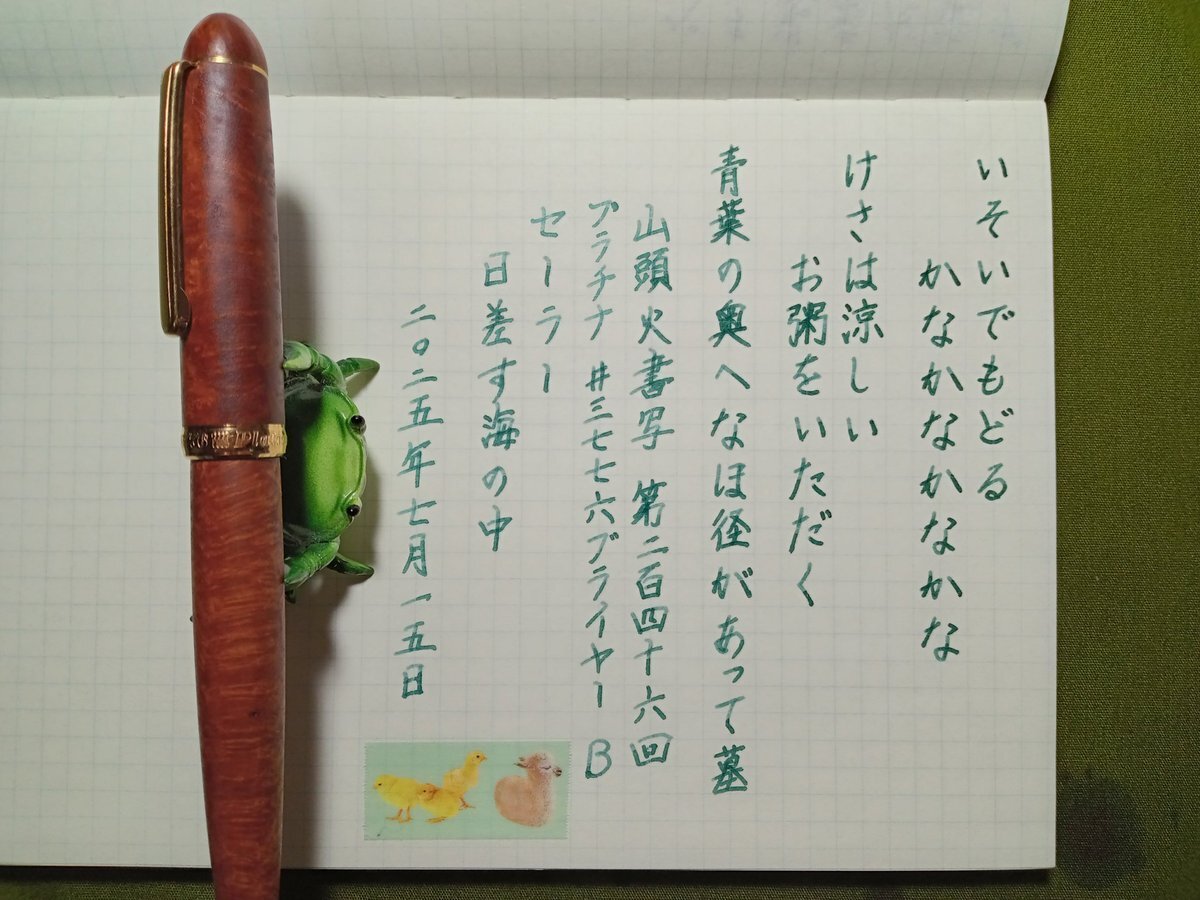 いそいでもどる
かなかなかなかな
けさは涼しい
お粥をいただく
青葉の奥へなほ径があって墓
山頭火書写 第二百四十六回
プラチナ #三七七六ブライヤー B
セーラー
日差す海の中
二〇二五年七月一五日